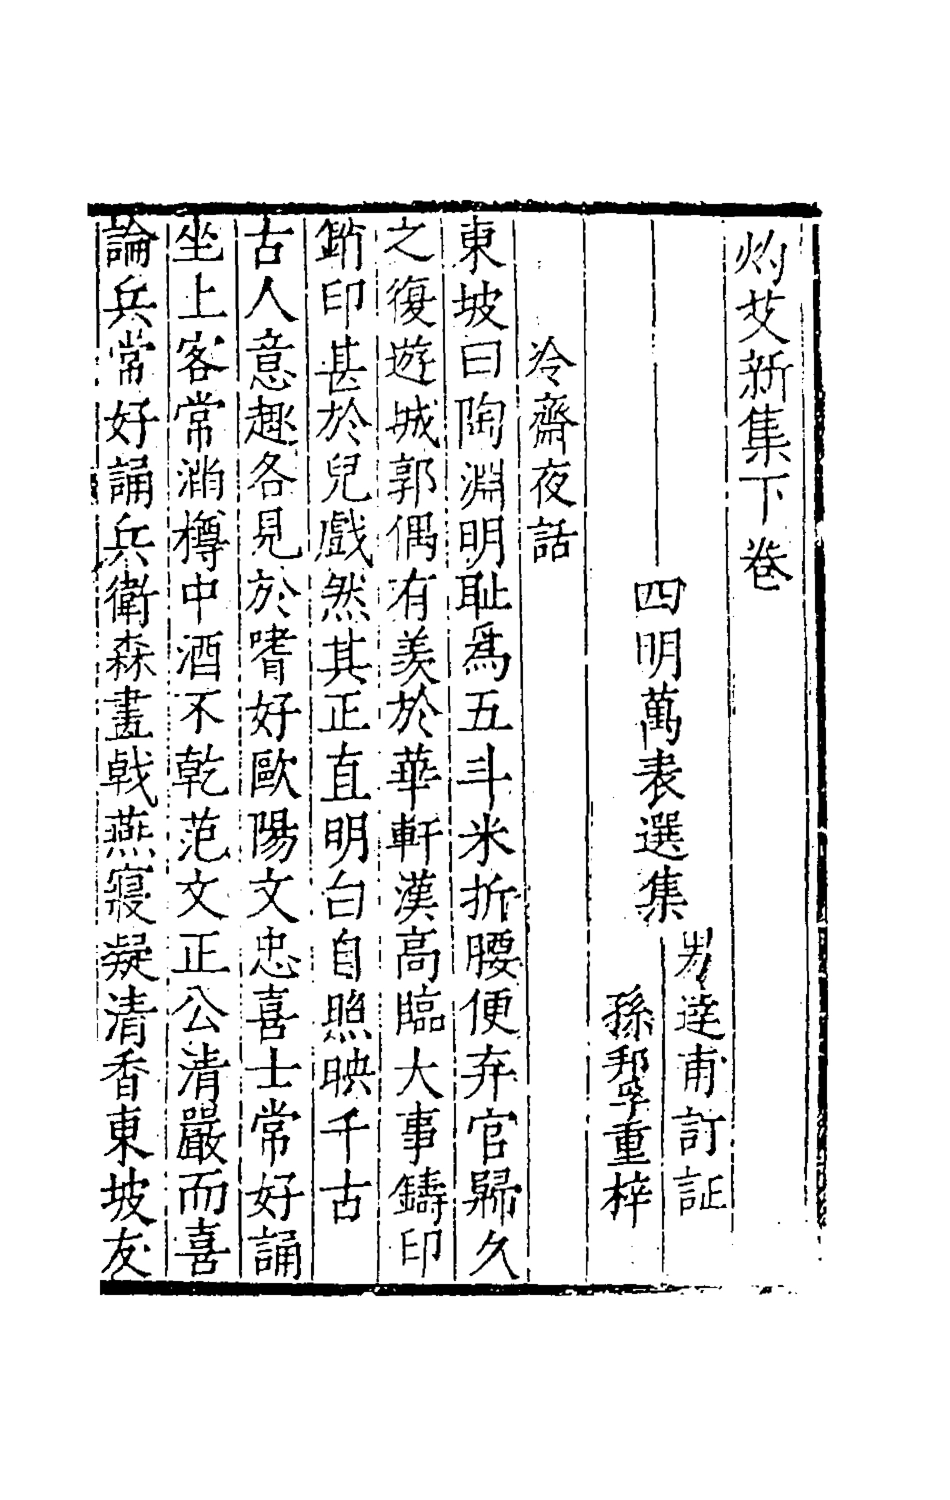 灼艾新集下卷
四明萬表選集
達甫訂証
孫邦孚重梓
冷齋夜話
東坡曰陶淵明耻爲五斗米折腰便弃官歸久
之復遊城郭偶有羨於華軒漢高臨大事鑄印
銷印甚於兒戲然其正直明白自照映千古
古人意趣各見於嗜好歐陽文忠喜士常好誦
坐上客常滿樽中酒不乾范文正公清嚴而喜
論兵常好誦兵衛森畫戟燕寢凝清香東坡友